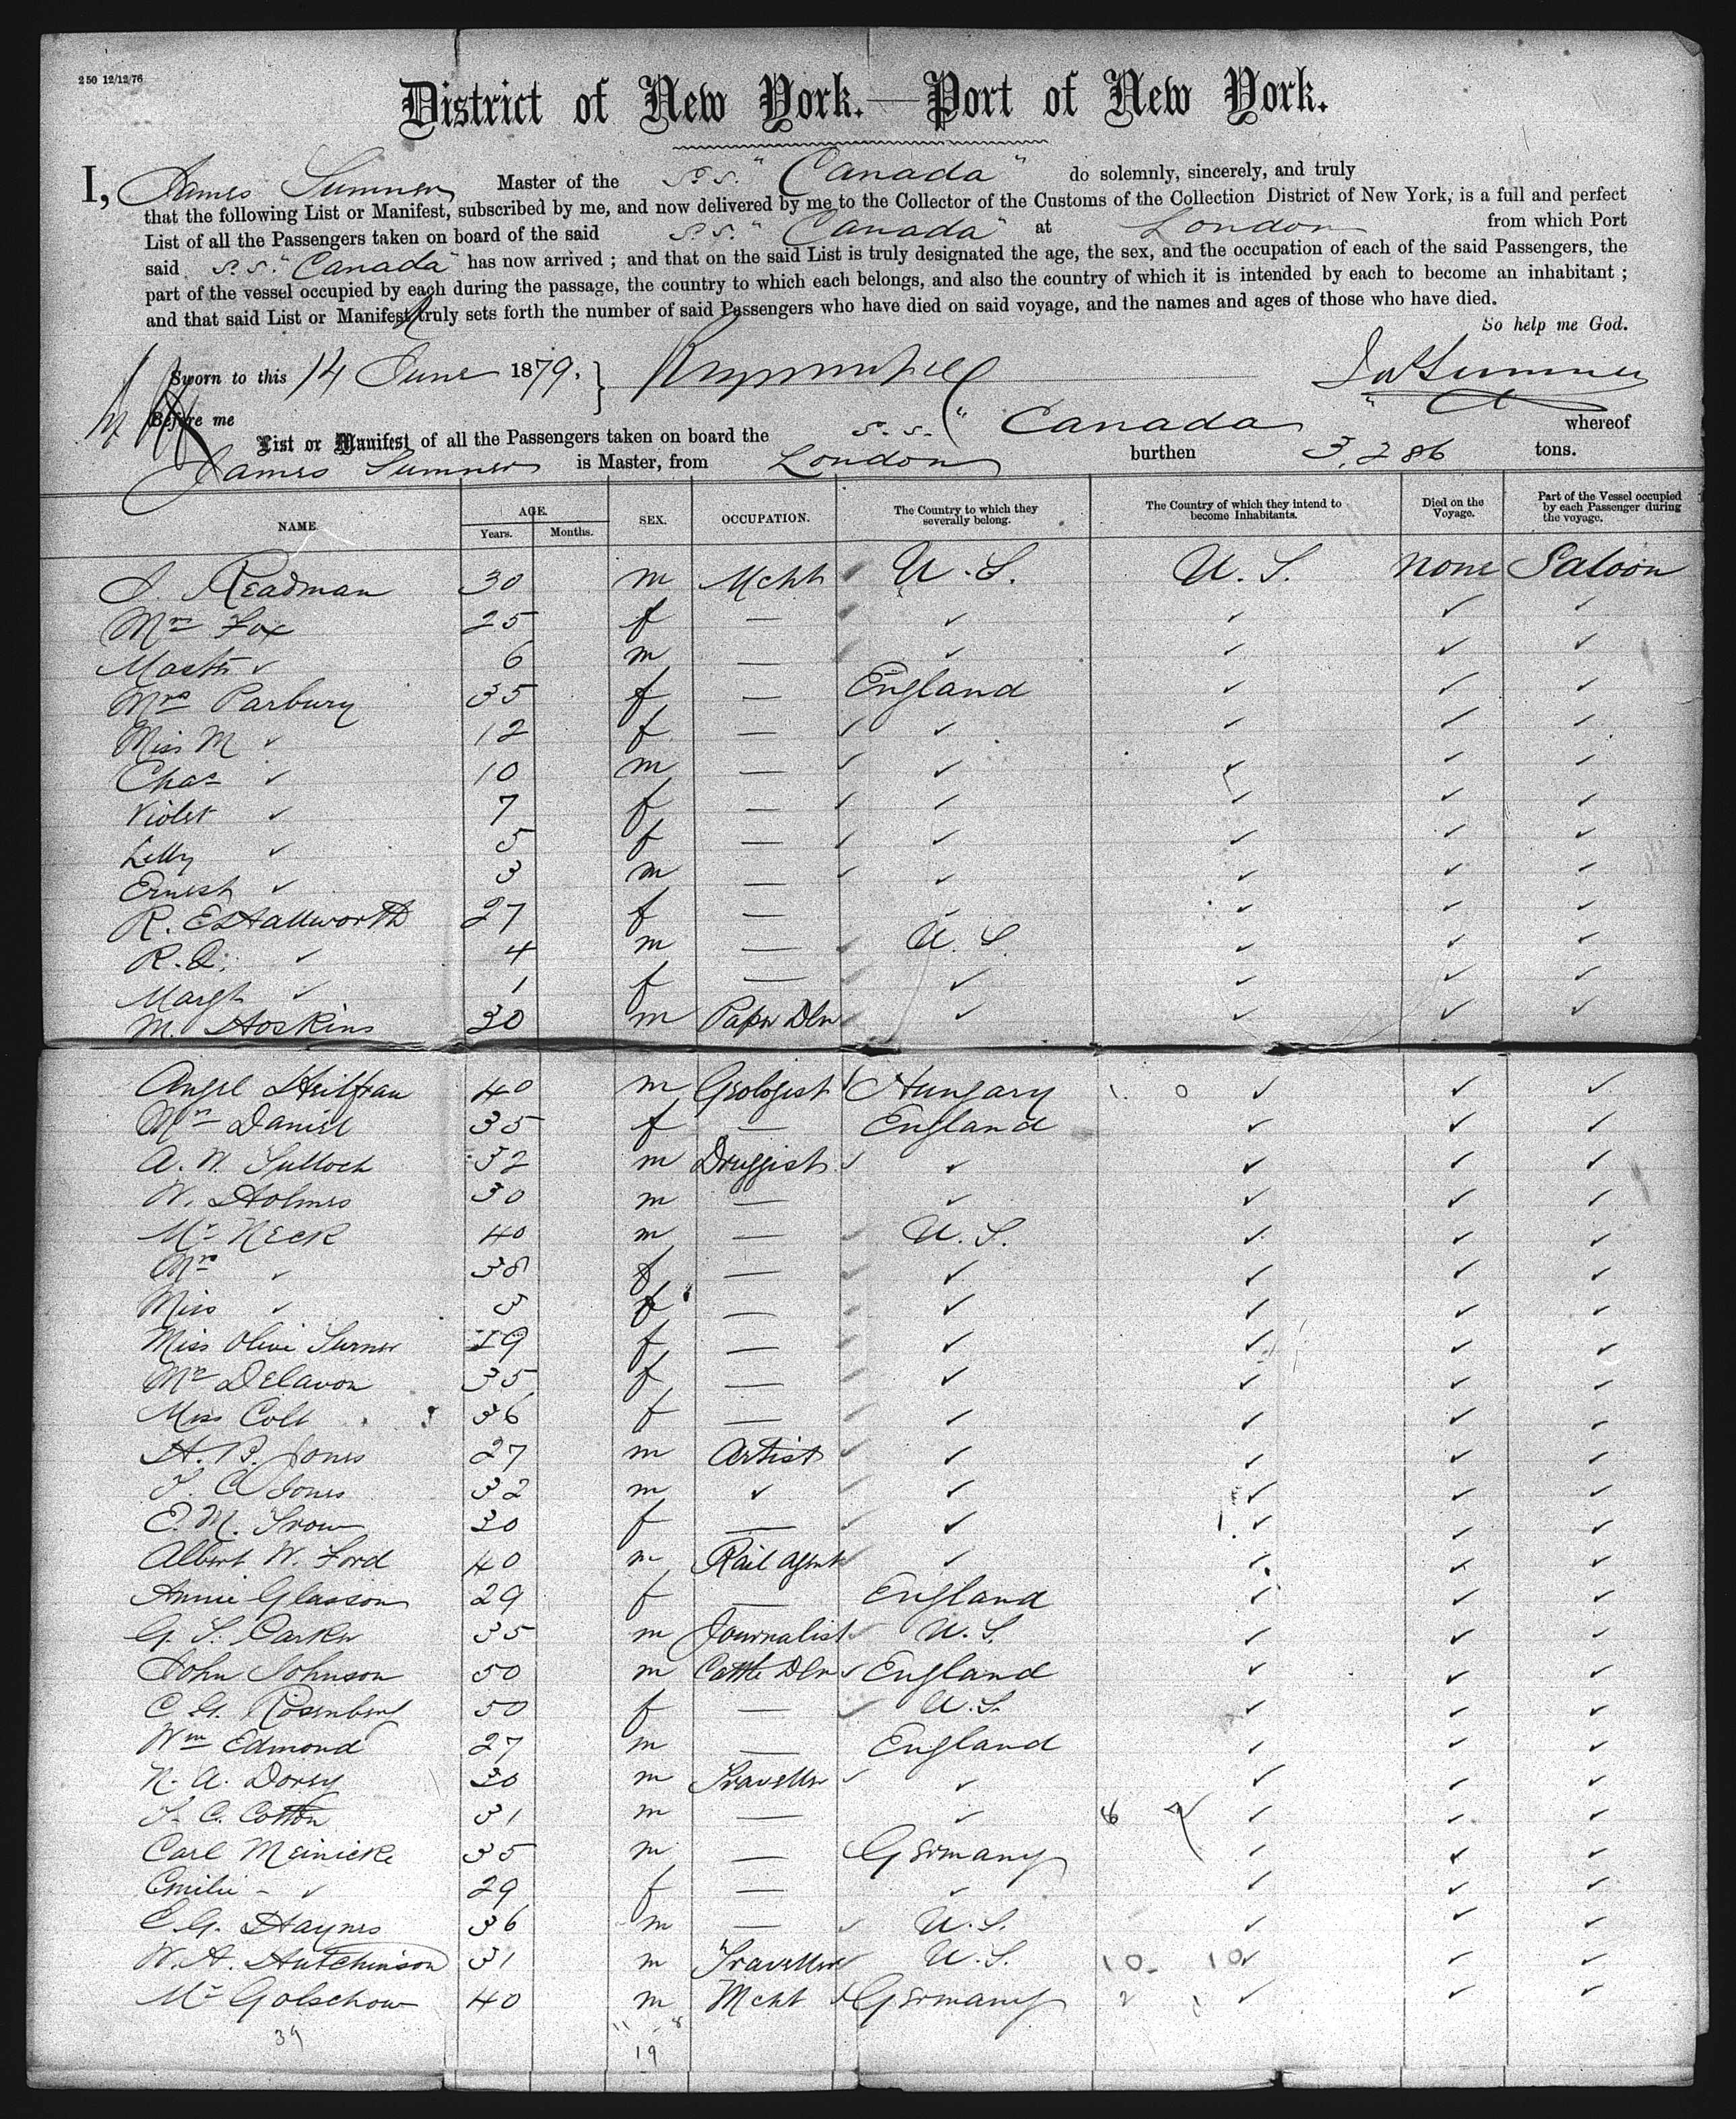 250 12/12/76
District of New York.—Port of New York.
I, James Sumner Master of the S.S. "Canada" do solemnly, sincerely, and truly
that the following List or Manifest, subscribed by me, and now delivered by me to the Collector of the Customs of the Collection District of New York, is a full and perfect
List of all the Passengers taken on board of the said S.S. "Canada" at London from which Port
said S.S. "Canada" has now arrived; and that on the said List is truly designated the age, the sex, and the occupation of each of the said Passengers, the
part of the vessel occupied by each during the passage, the country to which each belongs, and also the country of which it is intended by each to become an inhabitant;
and that said List or Manifest truly sets forth the number of said Passengers who have died on said voyage, and the names and ages of those who have died.
So help me God.
Sworn to this 14 June 1879. } Jas Sumner
Before me
List or Manifest of all the Passengers taken on board the S.S. "Canada" whereof
James Sumner is Master, from London burthen 3,286 tons.
NAME AGE. Years. Months. SEX. OCCUPATION. The Country to which they severally belong. The Country of which they intend to become Inhabitants. Died on the Voyage. Part of the Vessel occupied by each Passenger during the voyage.
J. Readman 30 m Mcht U.S. U.S. None Saloon
Mrs Fox 25 f — ✓ ✓ ✓ ✓
Master ✓ 6 m — ✓ ✓ ✓ ✓
Mrs Parbury 35 f — England ✓ ✓ ✓
Miss M ✓ 12 f — ✓ ✓ ✓ ✓
Chas ✓ 10 m — ✓ ✓ ✓ ✓
Violet ✓ 7 f — ✓ ✓ ✓ ✓
Lilly ✓ 5 f — ✓ ✓ ✓ ✓
Ernest ✓ 3 m — ✓ ✓ ✓ ✓
R. E. Hallworth 27 f — ✓ ✓ ✓ ✓
R. A. ✓ 4 m — U.S. ✓ ✓ ✓
Margt ✓ 1 f — ✓ ✓ ✓ ✓
M. Hoskins 30 m Paper Dlr ✓ ✓ ✓ ✓
Angel 40 m Geologist Hungary ✓ ✓ ✓
Mrs Daniel 35 f — England ✓ ✓ ✓
A. W. 32 m Druggist ✓ ✓ ✓ ✓
W. Holmes 30 m — ✓ ✓ ✓ ✓
Mr Neck 40 m — U.S. ✓ ✓ ✓
Mrs ✓ 38 f — ✓ ✓ ✓ ✓
Miss ✓ 3 f — ✓ ✓ ✓ ✓
Miss Olive Turner 19 f — ✓ ✓ ✓ ✓
Mrs Delavon 35 f — ✓ ✓ ✓ ✓
Miss Colt 36 f — ✓ ✓ ✓ ✓
H. B. Jones 27 m Artist ✓ ✓ ✓ ✓
T. C. Jones 32 m ✓ ✓ ✓ ✓ ✓
E. M. Trow 30 f — ✓ ✓ ✓ ✓
Albert W. Ford 40 m Rail Agent ✓ ✓ ✓ ✓
Annie Glasson 29 f — England ✓ ✓ ✓
G. T. Parker 35 m Journalist U.S. ✓ ✓ ✓
John Johnson 50 m Cattle Dlr England ✓ ✓ ✓
C. G. Rosenberg 50 f — U.S. ✓ ✓ ✓
Wm Edmond 27 m — England ✓ ✓ ✓
N. A. Dorsey 30 m Traveller ✓ ✓ ✓ ✓
T. C. Cotton 31 m — ✓ 8 ✓ ✓ ✓
Carl Meinicke 35 m — Germany ✓ ✓ ✓
Emilie - ✓ 29 f — ✓ ✓ ✓ ✓
C. G. Haynes 36 m — U.S. ✓ ✓ ✓
W. H. Hutchinson 31 m Traveller U.S. 10 10 ✓ ✓ ✓
Mr Golschow 40 m Mcht Germany 2 ✓ ✓ ✓
39 11 8
19